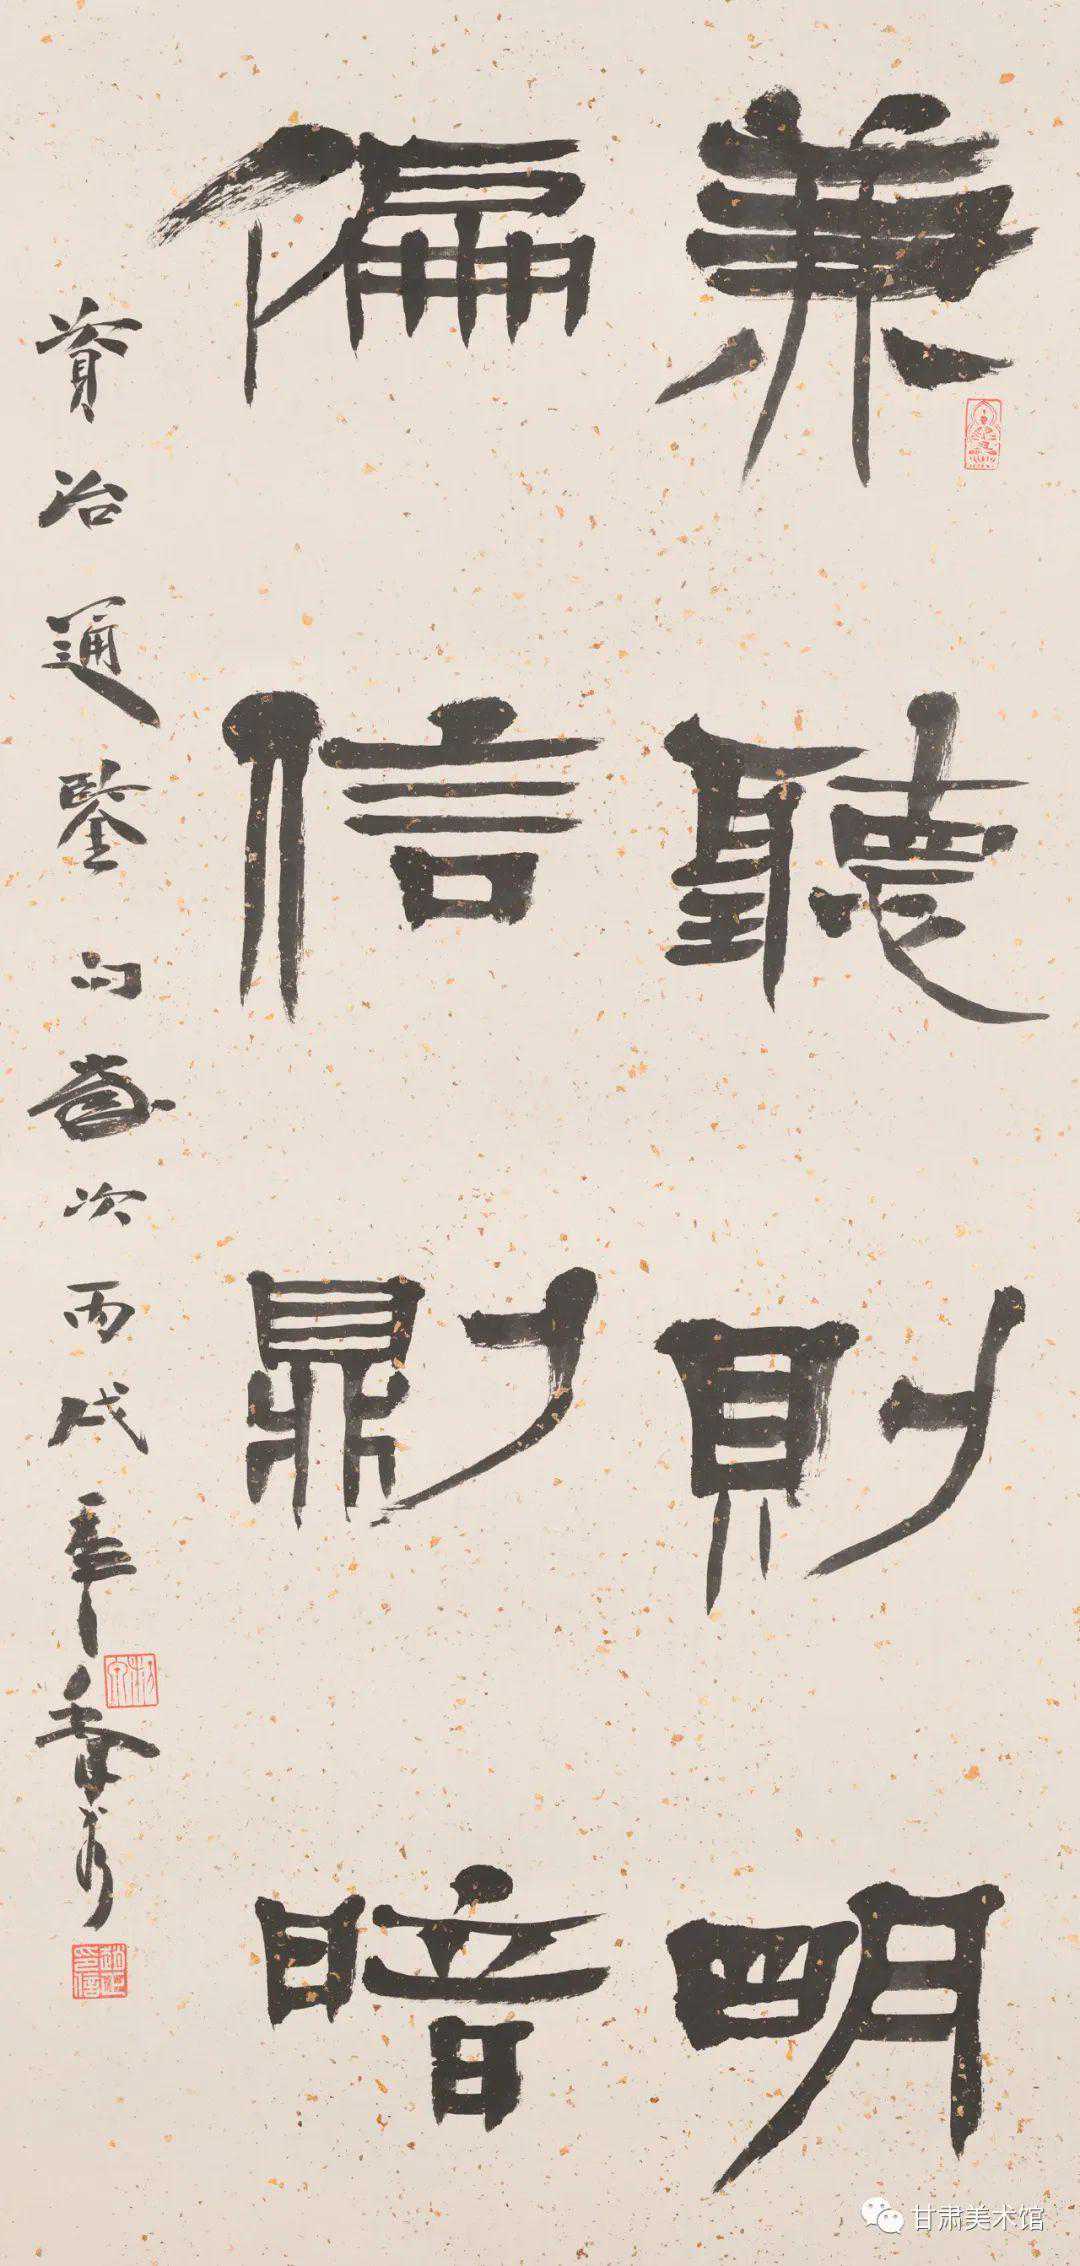 兼聽則明
偏信則暗
資治通鑒句歲次丙戌年
趙正印信
甘肃美术馆